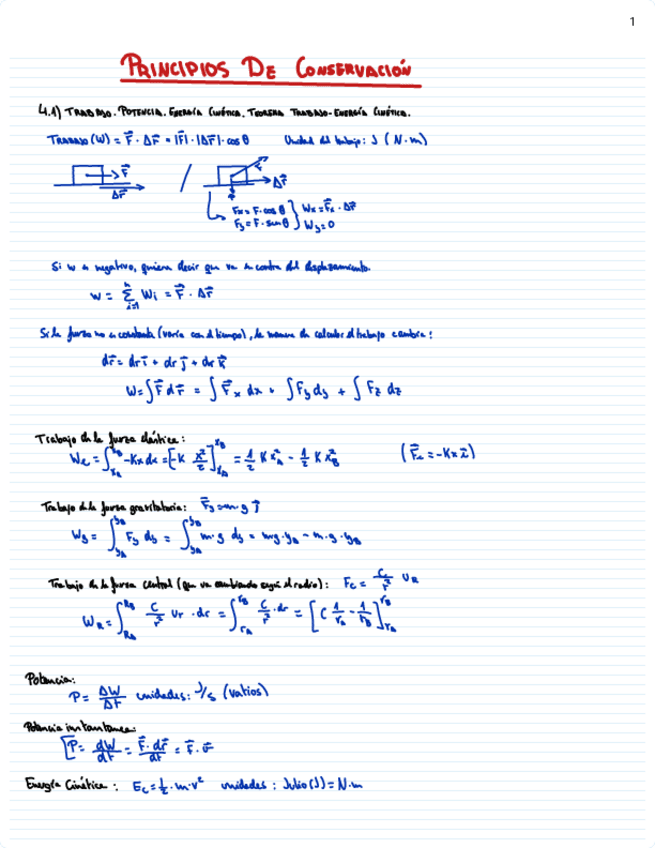 1
PRINCIPIOS DE CONSERVACIÓN
4.1) TRABAJO. POTENCIA. ENERGÍA CINÉTICA. TEOREMA TRABAJO-ENERGÍA CINÉTICA.
TRABAJO (W) = F⃗ · Δr⃗ = |F⃗| · |Δr⃗| · cos θ Unidad del trabajo: J (N·m)
F⃗ / F⃗
Δr⃗ Δr⃗
Fx = F·cos θ } Wx = F⃗x · Δr⃗
Fy = F·sen θ } Wy = 0
Si w es negativo, quiere decir que va en contra del desplazamiento.
w = Σ i=1 n Wi = F⃗ · Δr⃗
Si la fuerza no es constante (varía con el tiempo), la manera de calcular el trabajo cambia:
dr⃗ = dr i⃗ + dr j⃗ + dr k⃗
W = ∫ F⃗ dr⃗ = ∫ F⃗x dx + ∫ Fy dy + ∫ Fz dz
Trabajo de la fuerza elástica:
We = ∫xA xB -Kx dx = [-K x²/2]xA xB = 1/2 K x²A - 1/2 K x²B (F⃗e = -K x i⃗)
Trabajo de la fuerza gravitatoria: F⃗g = m·g j⃗
Wg = ∫yA yB Fg dy = ∫yA yB m·g dy = mg·ya - m·g·yb
Trabajo de la fuerza central (que va cambiando según el radio): Fc = C/r² UR
WR = ∫RA RB C/r² ur · dr = ∫rA rB C/r² · dr = [C 1/rA - 1/rB]rA rB
Potencia:
P = ΔW/Δt unidades: J/s (vatios)
Potencia instantanea:
[P = dW/dt = F⃗·dr⃗/dt = F⃗·v⃗
Energía Cinética: Ec = 1/2 · m·v² unidades: Julio (J) = N·m